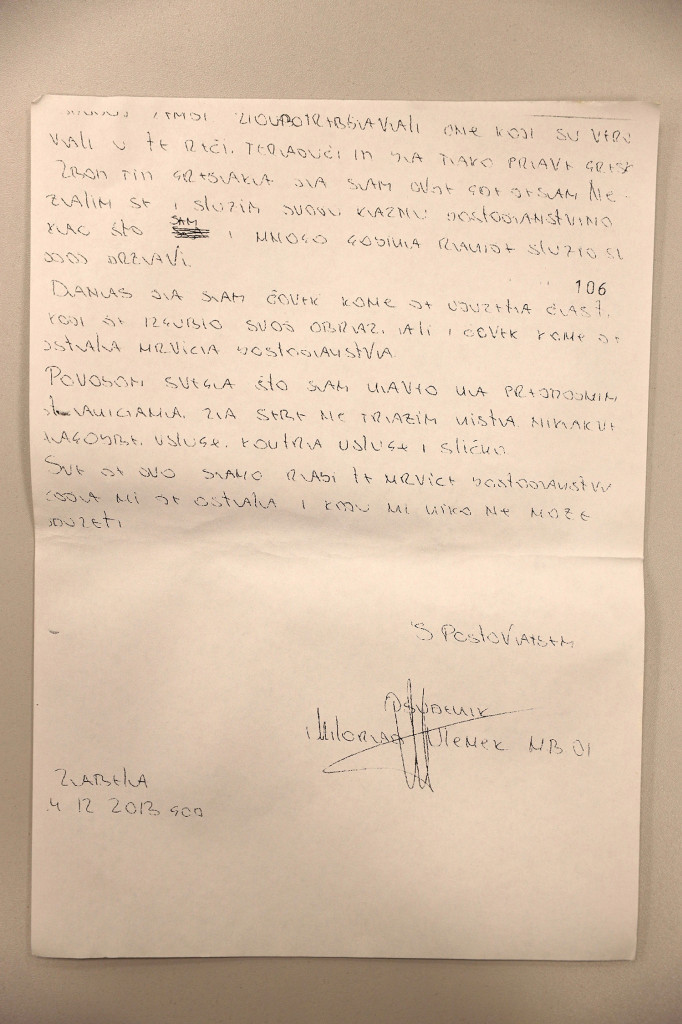 ZLOUPOTREBLJAVALI ONE KOJI SU VERO
VALI U TE REČI. TERAJUĆI IH DA TAKO PRAVE GREŠK
ZBOG TIH GREŠAKA JA SAM OVDE GDE JESAM. NE
ŽALIM SE I SLUŽIM SVOJU KAZNU DOSTOJANSTVENO
KAO ŠTO SAM I MNOGO GODINA RANIJE SLUŽIO SV
OJOJ DRŽAVI.
106
DANAS JA SAM ČOVEK KOME JE ODUZETA ČAST.
KOJI JE IZGUBIO SVOJ OBRAZ. ALI I ČOVEK KOME JE
OSTALA MRVICA DOSTOJANSTVA.
POVODOM SVEGA ŠTO SAM NAVEO NA PREDHODNIM
STRANICAMA. ZA SEBE NE TRAŽIM NIŠTA. NIKAKVE
USLUGE. KONTRA USLUGE I SLIČNO.
SVE JE OVO SAMO RADI TE MRVICE DOSTOJANSTVA
KOJA MI JE OSTALA I KOJU MI NIKO NE MOŽE
ODUZETI
S POŠTOVANJEM
OSUĐENIK
MILORAD ULEMEK MB 01
ZABELA
4 12 2013 GOD